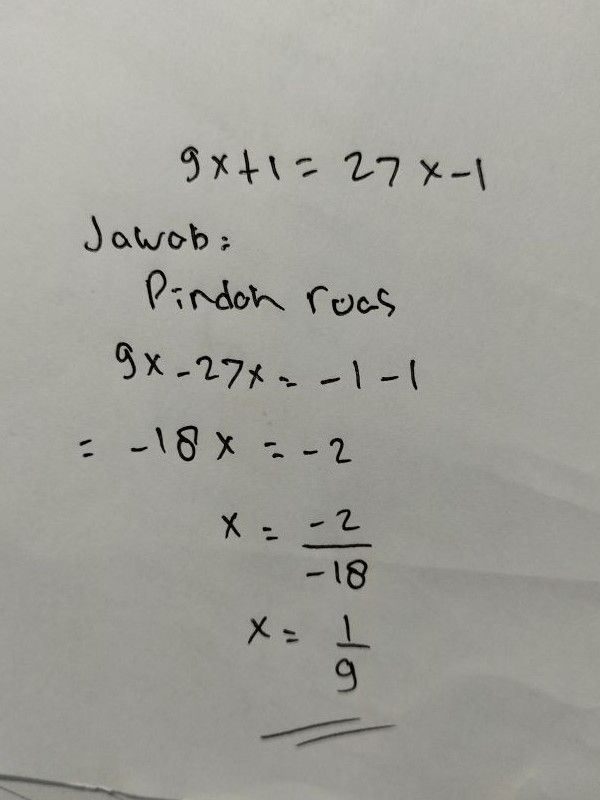 9x+1 = 27x-1
Jawab:
Pindah ruas
9x-27x = -1-1
= -18x = -2
x = -2/-18
x = 1/9